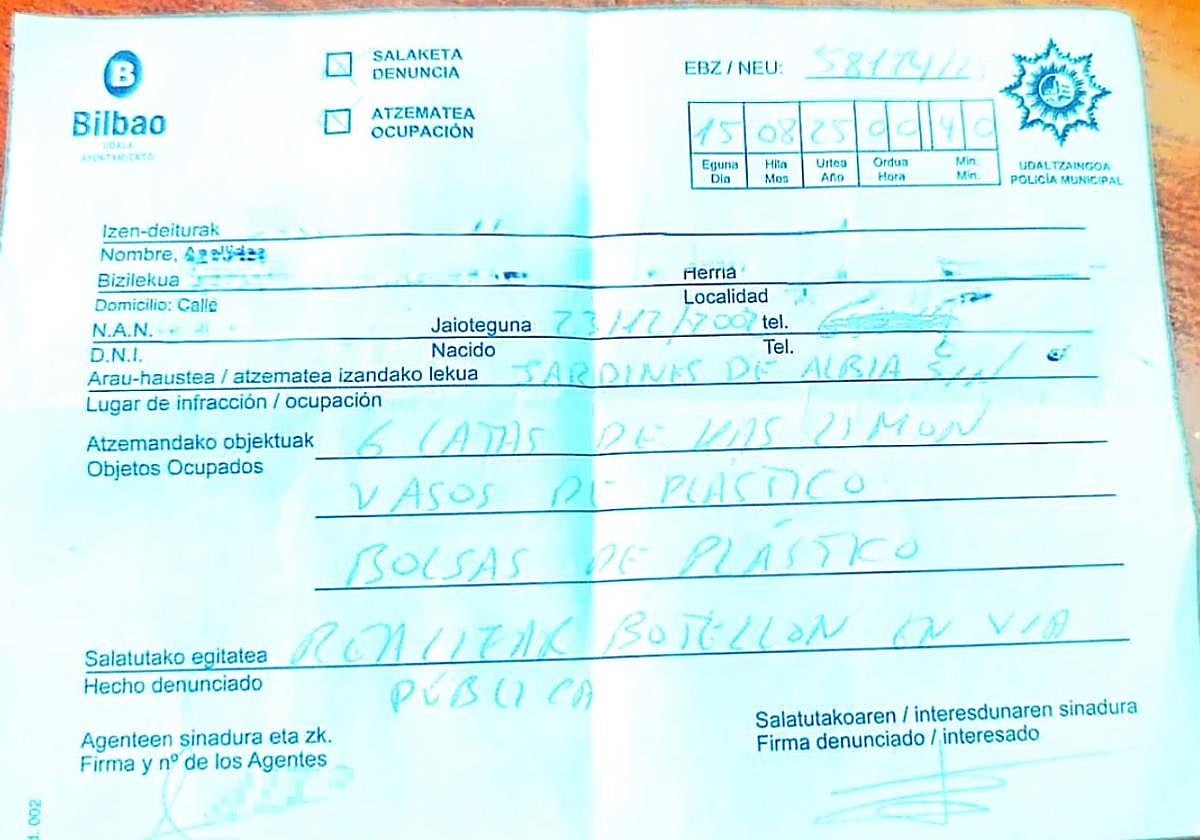 B
Bilbao
UDALA
AYUNTAMIENTO
SALAKETA
DENUNCIA
ATZEMATEA
OCUPACIÓN
EBZ / NEU:
15 08 25 00 40
Eguna Hila Urtea Ordua Min.
Dia Mes Año Hora Min.
UDALTZAINGOA
POLICÍA MUNICIPAL
Izen-deiturak
Nombre,
Bizilekua Herria
Domicilio: Calle Localidad
N.A.N. Jaioteguna tel.
D.N.I. Nacido Tel.
Arau-haustea / atzematea izandako lekua JARDINES DE ALBIA S/N
Lugar de infracción / ocupación
Atzemandako objektuak 6 LATAS DE KAS LIMON
Objetos Ocupados
VASOS DE PLÁSTICO
BOLSAS DE PLÁSTICO
Salatutako egitatea REALIZAR BOTELLON EN VIA
Hecho denunciado PÚBLICA
Agenteen sinadura eta zk.
Firma y nº de los Agentes
Salatutakoaren / interesdunaren sinadura
Firma denunciado / interesado
002